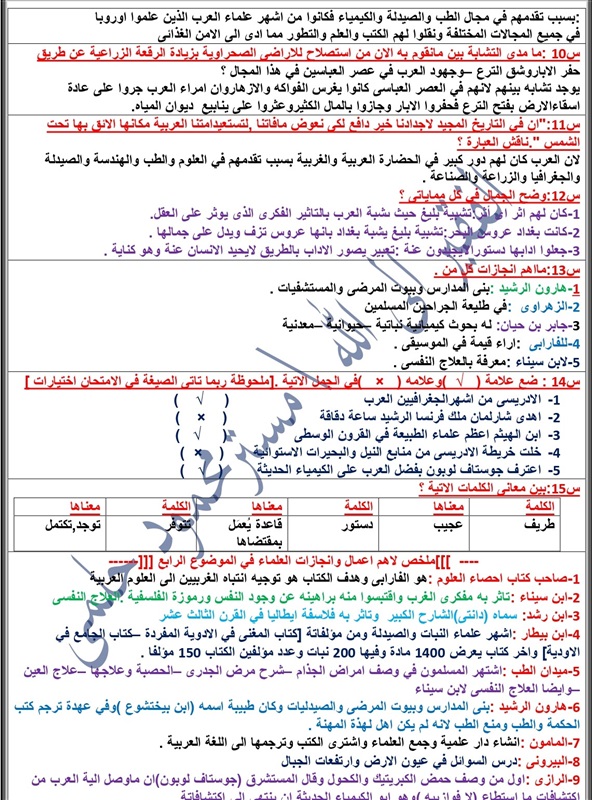 :بسبب تقدمهم في مجال الطب والصيدلة والكيمياء فكانوا من اشهر علماء العرب الذين علموا اوروبا
في جميع المجالات المختلفة ونقلوا لهم الكتب والعلم والتطور مما ادى الى الامن الغذائى
س10 :ما مدى التشابة بين مانقوم به الان من استصلاح للاراضى الصحراوية بزيادة الرقعة الزراعية عن طريق
حفر الاباروشق الترع –وجهود العرب في عصر العباسين في هذا المجال ؟
يوجد تشابه بينهم لانهم في العصر العباسى كانوا يغرس الفواكه والازهاروان امراء العرب جروا على عادة
اسقاءالارض بفتح الترع فحفروا الابار وجازوا بالمال الكثيروعثروا على ينابيع ديوان المياه.
س11:"ان في التاريخ المجيد لاجدادنا خير دافع لكى نعوض مافاتنا ,لتستعيدامتنا العربية مكانها الائق بها تحت
الشمس ".ناقش العبارة ؟
لان العرب كان لهم دور كبير في الحضارة العربية والغربية بسبب تقدمهم في العلوم والطب والهندسة والصيدلة
والجغرافيا والزراعة والصناعة .
س12:وضح الجمال في كل ممايأتى ؟
1-كان لهم اثر اى اثر:تشبية بليغ حيث شبة العرب بالتاثير الفكرى الذى يوثر على العقل.
2-كانت بغداد عروس البحر:تشبية بليغ يشبة بغداد بانها عروس تزف ويدل على جمالها .
3-جعلوا ادابها دستورالايحيدون عنة :تعبير يصور الاداب بالطريق لايحيد الانسان عنة وهو كناية .
س13:مااهم انجازات كل من .
1-هارون الرشيد :بنى المدارس وبيوت المرضى والمستشفيات .
2-الزهراوى: في طليعة الجراحين المسلمين
3-جابر بن حيان: له بحوث كيميائية نباتية –حيوانية –معدنية
4-للفارابى : اراء قيمة في الموسيقى .
5-لابن سيناء : معرفة بالعلاج النفسى .
س14 : ضع علامة ( √ )وعلامه ( × )في الجمل الاتية .[ملحوظة ربما تاتى الصيغة في الامتحان اختيارات ]
1- الادريسى من اشهرالجغرافيين العرب ( √ )
2- اهدى شارلمان ملك فرنسا الرشيد ساعة دقاقة ( × )
3- ابن الهيثم اعظم علماء الطبيعة في القرون الوسطى ( √ )
4- خلت خريطة الادريسى من منابع النيل والبحيرات الاستوائية ( × )
5- اعترف جوستاف لوبون بفضل العرب على الكيمياء الحديثة ( √ )
س15:بين معانى الكلمات الاتية ؟
الكلمة معناها الكلمة معناها الكلمة معناها
طريف عجيب دستور قاعدة يُعمَل بمقتضاها تتوفر توجد,تكتمل
---- [[[ملخص لاهم اعمال وانجازات العلماء في الموضوع الرابع ]]]------
1-صاحب كتاب احصاء العلوم :هو الفارابى وهدف الكتاب هو توجيه انتباه الغربيين الى العلوم العربية
2-ابن سيناء: تاثر به مفكرى الغرب واقتبسوا منه براهينه عن وجود النفس ورموزة الفلسفية :العلاج النفسى
3-ابن رشد: سماه (دانتى)الشارح الكبير وتاثر به فلاسفة ايطاليا في القرن الثالث عشر
4-ابن بيطار: اشهر علماء النبات والصيدلة ومن مؤلفاتة [كتاب المغنى في الادوية المفردة –كتاب الجامع في
الاودية] واخر كتاب يعرض 1400 مادة وفيها 200 نبات وعدد مؤلفين الكتاب 150 مؤلفا .
5-ميدان الطب :اشتهر المسلمون في وصف امراض الجذام –شرح مرض الجدرى –الحصبة وعلاجها –علاج العين
–وايضا العلاج النفسى لابن سيناء
6-هارون الرشيد: بنى المدارس وبيوت المرضى والصيدليات وكان طبيبة اسمه (ابن بيختشوع )وفي عهدة ترجم كتب
الحكمة والطب ومنع الطب لانه لم يكن اهل لهذة المهنة .
7-المامون: انشاء دار علمية وجمع العلماء واشترى الكتب وترجمها الى اللغة العربية .
8-البيرونى: درس السوائل في عيون الارض وارتفعات الجبال
9-الرازى: اول من وصف حمض الكبريتيك والكحول وقال المستشرق (جوستاف لوبون)ان ماوصل الية العرب من
اكتشافات ما استطاع (لا فوازييه )وهو ابو الكيمياء الحديثة ان ينتهى الى اكتشافاتة
الفقير الى الله / مستر محمود حلمى